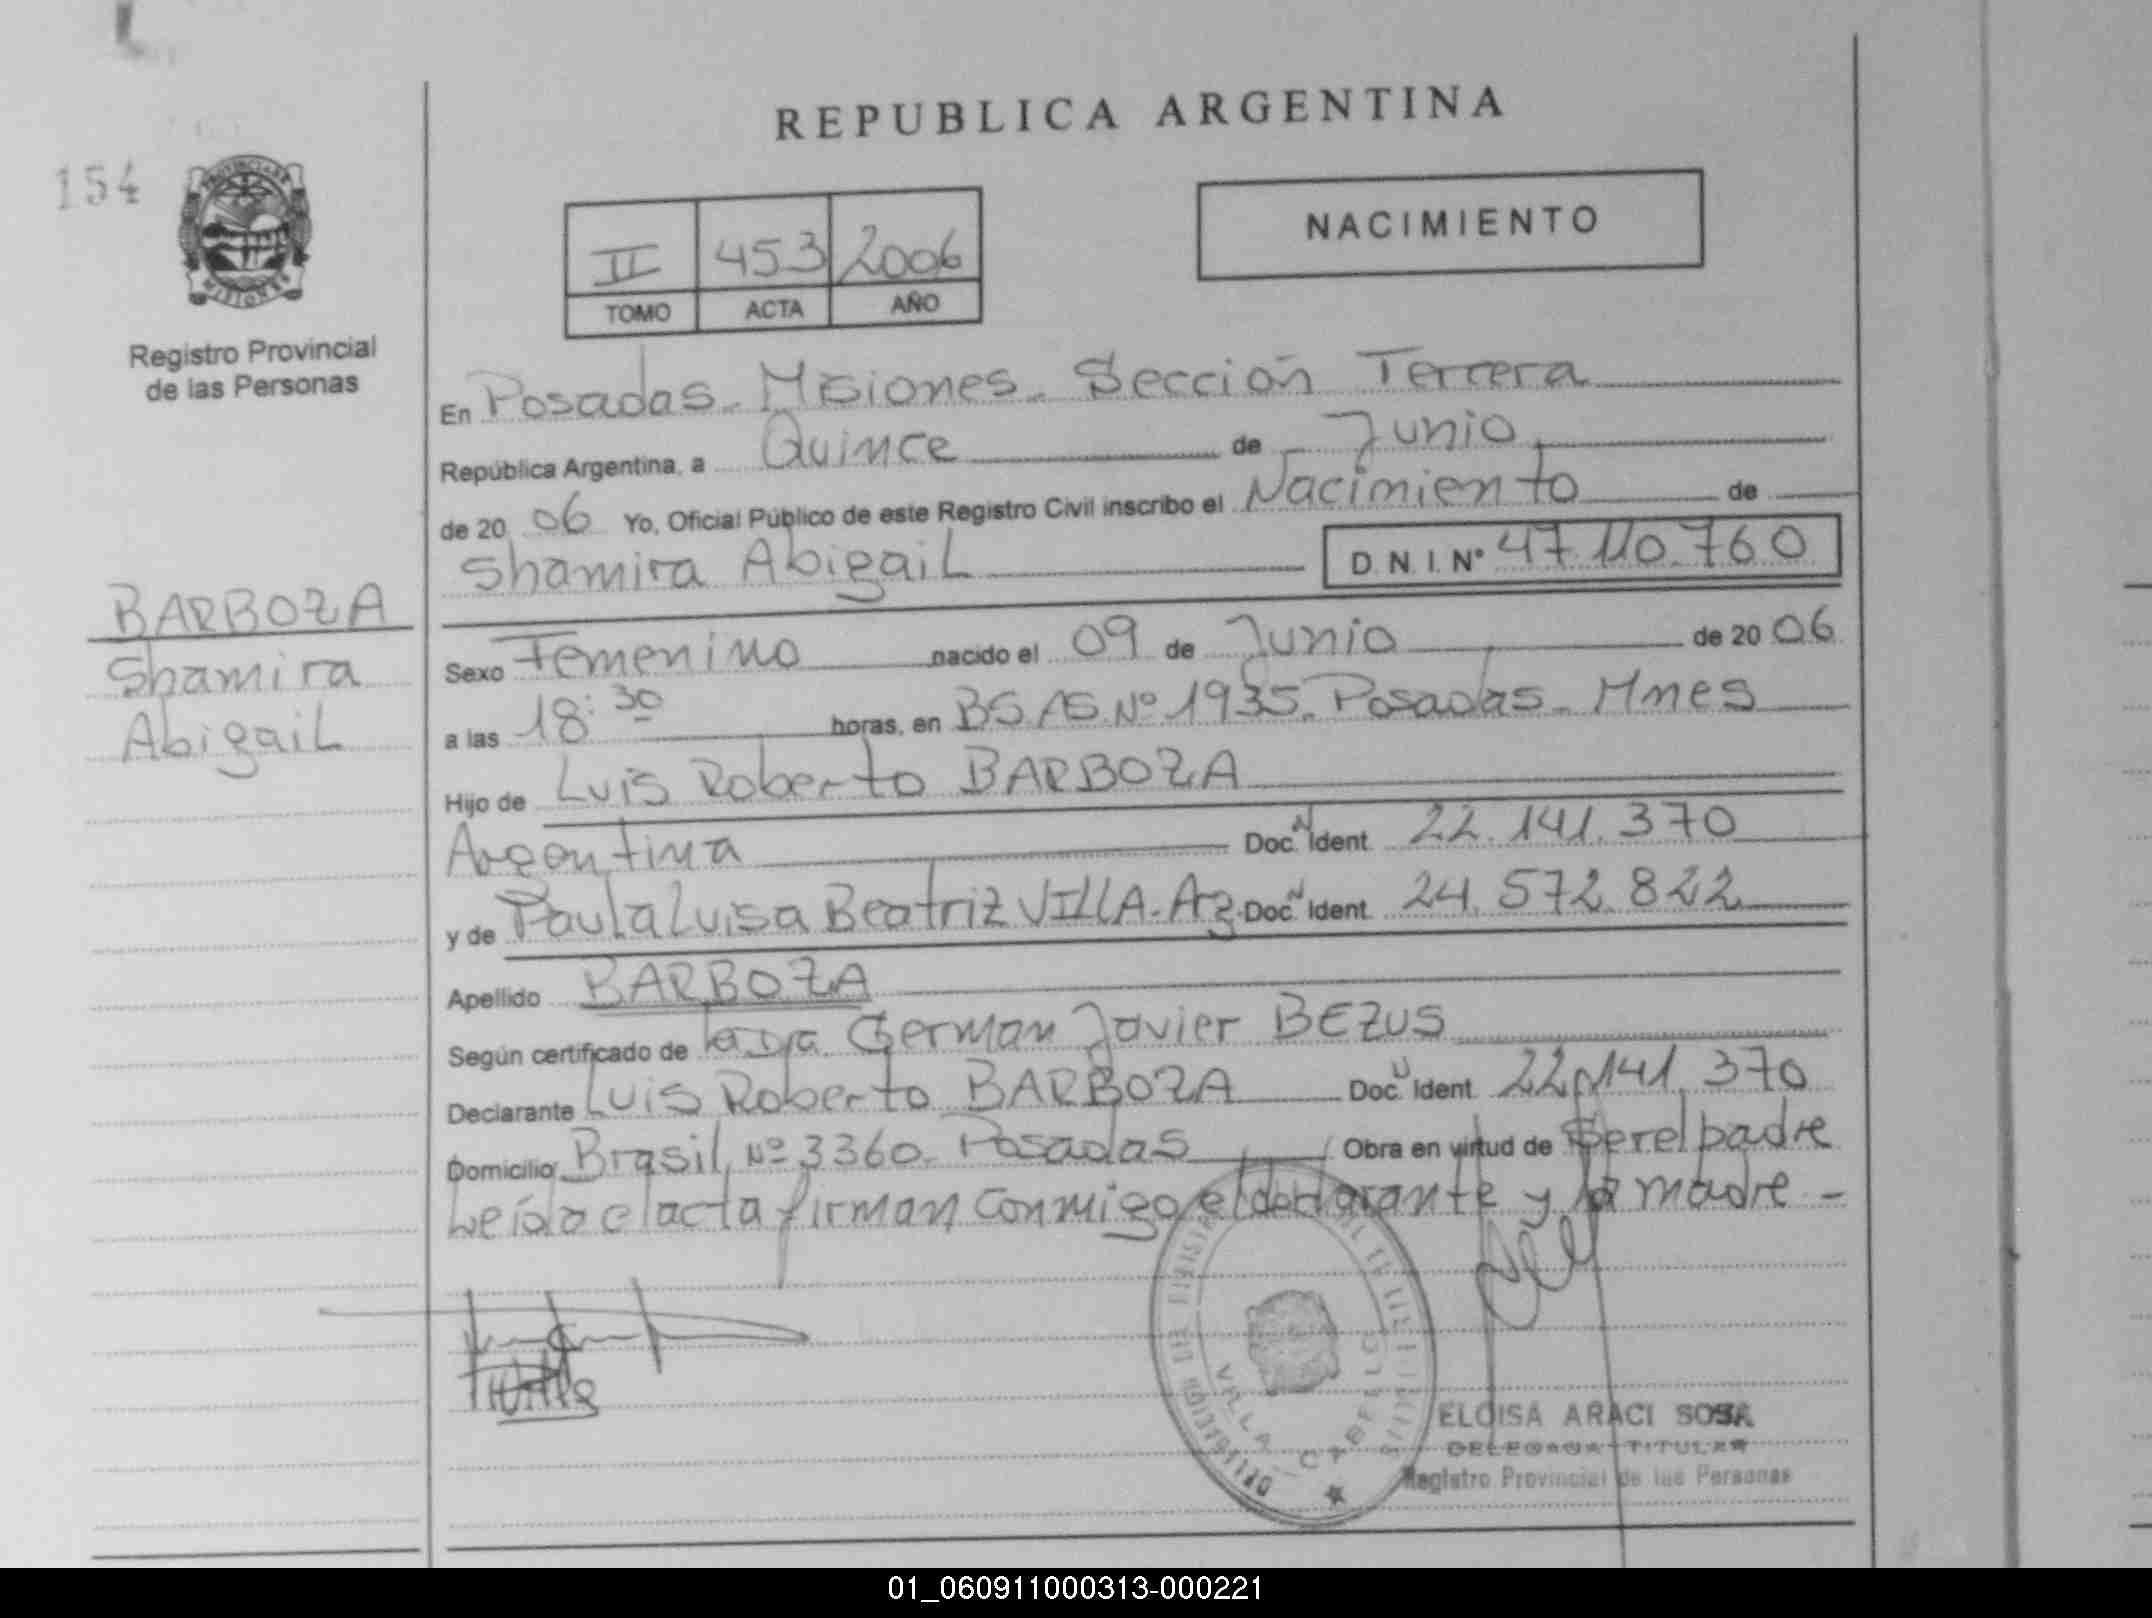 REPUBLICA ARGENTINA
154
PROVINCIA DE MISIONES
Registro Provincial
de las Personas
II 453 2006
TOMO ACTA AÑO
NACIMIENTO
En Posadas - Misiones - Sección Tercera
República Argentina, a Quince de Junio
de 20 06 Yo, Oficial Público de este Registro Civil inscribo el Nacimiento de
Shamira Abigail D.N.I. Nº 47.110.760
BARBOZA
Shamira
Abigail
Sexo Femenino nacido el 09 de Junio de 20 06
a las 18:30 horas, en BS.AS. Nº 1935. Posadas - Mnes
Hijo de Luis Roberto BARBOZA
Argentina Doc. N Ident. 22.141.370
y de Paula Luisa Beatriz VILLA - Arg. Doc. N Ident. 24.572.822
Apellido BARBOZA
Según certificado de German Javier BEZUS
Declarante Luis Roberto BARBOZA Doc. N Ident. 22.141.370
Domicilio Brasil Nº 3360 - Posadas Obra en virtud de Ser el padre
Leída el acta firman conmigo el declarante y la madre -
VILLA CABELLO
ELOISA ARACI SOSA
DELEGADA TITULAR
Registro Provincial de las Personas
01_060911000313-000221